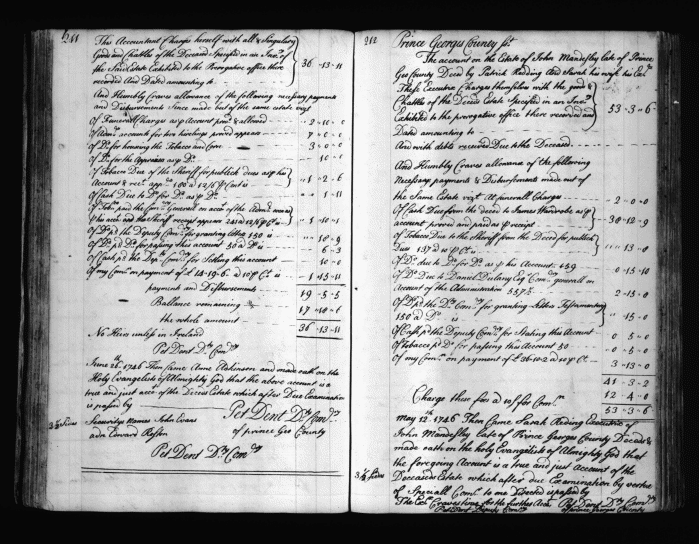 241
This Accountant Charges herself with all & Singulary
Goods and Chattles of the Deceased Specified in an Invy. of
the Said Estate Exhibited to the Prerogative office there
recorded And Dated amounting to
36 - 13 - 11
And Humbly Craves allowance of the following necessary payments
and Disbursements Since made out of the same estate vizt
Of Funeral Charges as p Account prov'd & allowed 2 - 10 - 0
Of Adms. accounts for two hirelings proved appears 7 - 0 - 0
Of Do. for housing the Tobacco and Corn 3 - 0 - 0
Of Do. for the Appraisers as p Do. 10 - 0
Of Tobacco Due of the Sheriff for publick dues as p his
Account & rect. app 180 a 12/6 p Cent is 1 - 2 - 6
Of Cash Due to Dr. for Do. as p Do. 1 - 11
Of Tobo. paid the Comy. Generall on acct. of the Admx. was as
p his acct. and the Sheriff receipt appears 241 a 12/6 p Ct is 1 - 10 - 1
Of Do. pd. the Deputy Comy. for granting Letters 150 is 10 - 9
Of Do. pd. Do. for passing this account 50 a Do. is 6 - 3
Of Cash pd. the Dpty. Comy. for Stating this Account 10 - 0
of my Comn. on payment of £ 14-19-6. a 10 p Ct. is 1 - 15 - 11
payments and Disbursements 19 - 5 - 5
Ballance remaining 17 - 10 - 6
the whole amount 36 - 13 - 11
No Heirs unless in Ireland
Pet Dent Dy. Comy
June 26th 1746 Then Came Anne Atkinson and made oath on the
Holy Evangelists of Almighty God that the above account is a
true and just acct. of the Deceds Estate which after Due Examination
is passed by
Pet Dent Dy. Comy.
of prince Geo County
3½ Sides
Securitys Names John Evans
and Edward
Pet Dent Dy. Comy
242
Prince Georges County Sct.
The account on the Estate of John Mandesley late of Prince
Geo County Deced by Patrick Redding And Sarah his wife his Exx.
These Executrs Charges themselves with the goods &
Chattles of the Deced Estate Specified in an Invy.
Exhibited to the prerogative office there recorded and
Dated amounting to
53 - 3 - 6
And with debts received Due to the Deceased
And Humbly Craves allowance of the following
Necessary payments & Disbursments made out of
the Same Estate vizt. Of funerall Charges 2 - 0 - 0
Of Cash Due from the deced to James Wardrobe as p
account proved and paid as p receipt 30 - 12 - 9
Of Tobacco Due to the Sheriff from the Deced for publick
Dues 137 a 10 p Ct is 13 - 0
Of Do. due to Do. for Do. as p his Account 159 0 - 15 - 10
Of Do. Due to Daniel Dulany Esq Comy. generall on
Account of the Administration 557½ 2 - 15 - 0
Of Do. pd. the Dy. Comy. for granting Letters Testamentary
150 a Do. is 15 - 0
Of Cash pd. the Deputy Comy. for Stating this Account 0 - 5 - 0
Of Tobacco pd. Do. for passing this Account 50 0 - 5 - 0
Of my Comn. on payment of £ 36-10-2 a 10 p Ct. 3 - 13 - 0
41 - 3 - 2
Charge these for a 10 p Comn. 12 - 4 - 0
53 - 3 - 6
May 12th. 1746 Then Came Sarah Reding Executrix of
John Mandesley late of Prince Georges County Deced &
made oath on the holy Evangelists of Almighty God that
the foregoing Account is a true and just Account of the
Deceaseds Estate which after due Examination by vertue
of Speciall Comn. to me Directed is passed by
3½ Sides
The Exx. Craves time for the further Acct. Pet Dent Dy. Comy
Pet Dent Deputy Comy. of prince Georges County